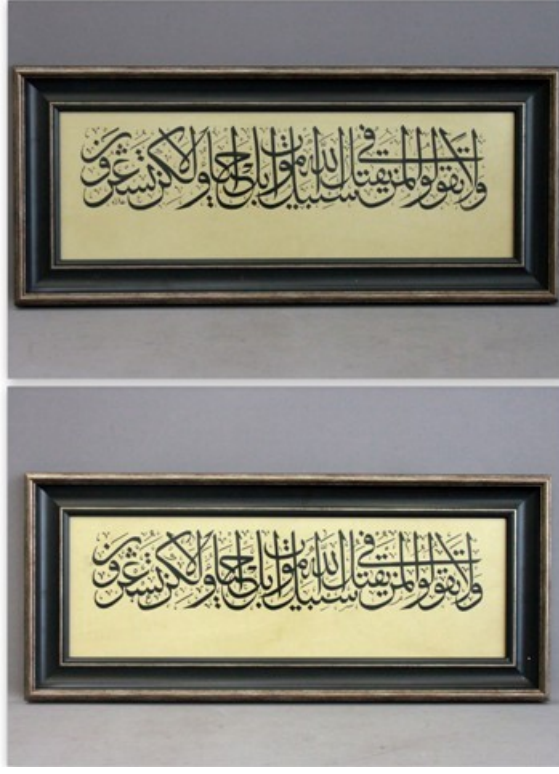 ولا تقولوا لمن يقتل في سبيل الله أموات بل أحياء ولكن لا تشعرون
ولا تقولوا لمن يقتل في سبيل الله أموات بل أحياء ولكن لا تشعرون